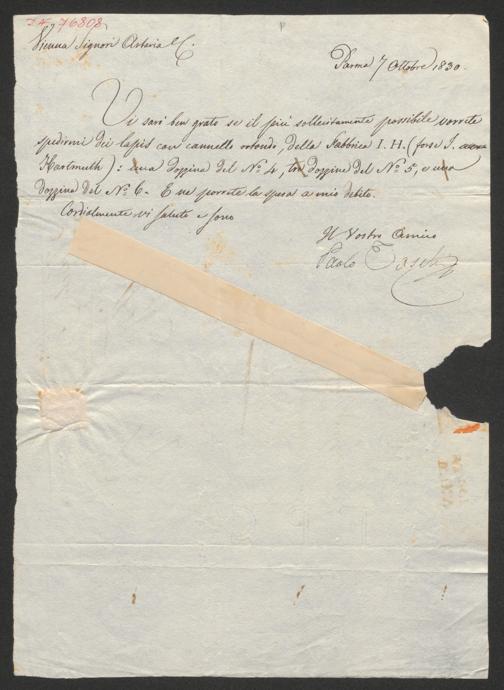 I.N. 76808
Vienna Signori Artaria & C.
Parma 7 Ottobre 1830.
Vi sarò ben grato se il più sollecitamente possibile vorrete
spedirmi dei lapis con cannello rotondo, della Fabbrica I. H. (forse J.
Hartmuth): una dozzina del N.º 4, tre dozzine del N.º 5, e una
dozzina del N.º 6. E ne porrete la spesa a mio debito.
Cordialmente vi saluto e sono
Il Vostro Amico
Paolo Toschi